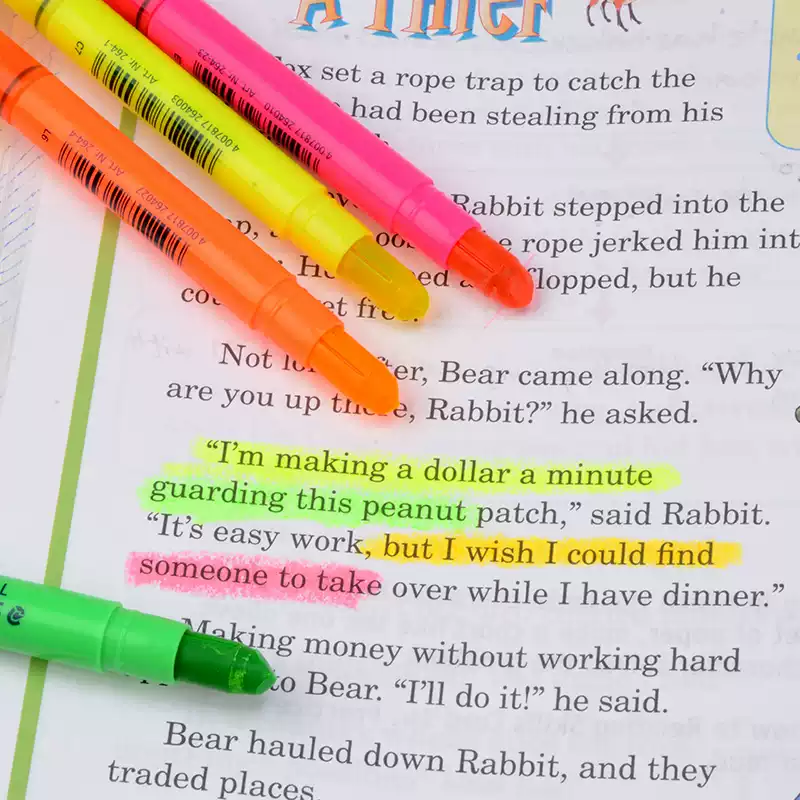 A THIEF
set a rope trap to catch the
had been stealing from his
Rabbit stepped into the
rope jerked him
flopped, but he
Not er, Bear came along. “Why
are you up there, Rabbit?” he asked.
“I’m making a dollar a minute
guarding this peanut patch,” said Rabbit.
“It’s easy work, but I wish I could find
someone to take over while I have dinner.”
Making money without working hard
to Bear. “I’ll do it!” he said.
Bear hauled down Rabbit, and they
traded places.
Art. Nr. 264-1
4 007817 264003
Art. Nr. 264-23
4 007817 264010
Art. Nr. 264-4
4 007817 264027